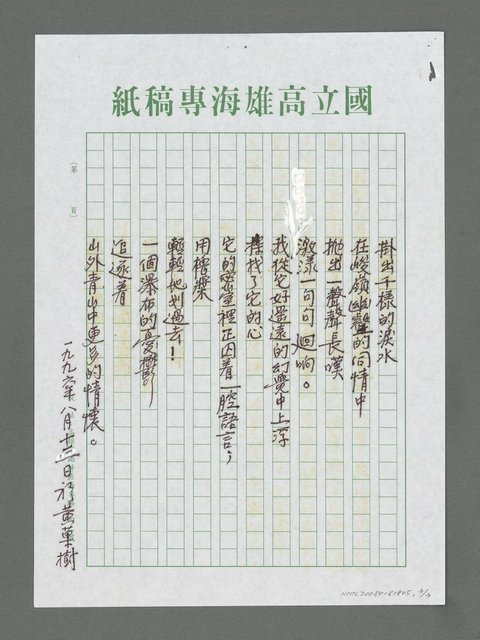 國立高雄海專稿紙
掛出千樣的淚水
在峻嶺幽壑的同情中
拋出一聲聲長嘆
激漾一句句迴响。
我從它好遙遠的幻覺中上浮
找了它的心
它的密室裡正囚着一腔語言，
用櫓槳
輕輕地划過去！
一個瀑布的憂鬱
追逐着
山外青山中更多的情懷。
一九九六年八月十三日於黃菓樹
（第　頁）
NMTL20080181805, 3/3